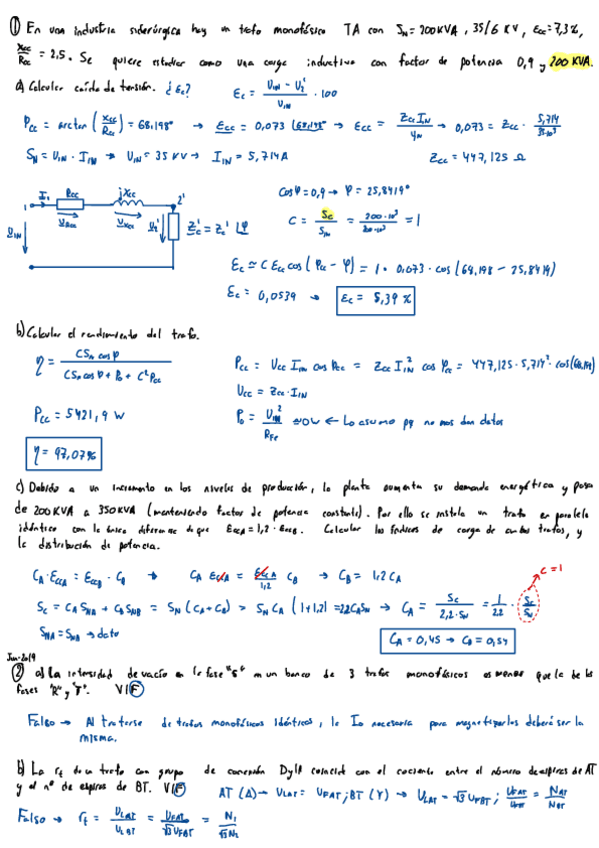 ① En una industria siderúrgica hay un trafo monofásico TA con S_N = 200 KVA, 35/6 KV, ε_cc = 7,3%,
X_cc/R_cc = 2,5. Se quiere estudiar como una carga inductiva con factor de potencia 0,9 y 200 KVA.
a) Calcular caída de tensión. ¿ε_c? ε_c = (U_1N − U_2')/U_1N · 100
φ_cc = arctan (X_cc/R_cc) = 68,198° → ε_cc = 0,073 ∠68,198° → ε_cc = Z_cc I_1N/U_1N → 0,073 = Z_cc · 5,714/35·10³
S_N = U_1N · I_1N → U_1N = 35 KV → I_1N = 5,714 A Z_cc = 447,125 Ω
I_1 R_cc jX_cc 2'
1
U_1N U_Rcc U_Xcc U_2' Z_c' = Z_c' ∠φ
cosφ = 0,9 → φ = 25,8419°
C = S_c/S_1N = 200·10³/20·10³ = 1
ε_c ≃ C ε_cc cos (φ_cc − φ) = 1 · 0,073 · cos (68,198 − 25,8419)
ε_c = 0,0539 → ε_c = 5,39 %
b) Calcular el rendimiento del trafo.
η = C S_N cosφ / (C S_N cosφ + P_0 + C² P_cc)
P_cc = U_cc I_1N cos φ_cc = Z_cc I_1N² cos φ_cc = 447,125 · 5,714² · cos(68,198)
U_cc = Z_cc · I_1N
P_cc = 5421,9 W
P_0 = U_1N²/R_Fe ≈ 0W ← Lo asumo pq no nos dan datos
η = 97,07%
c) Debido a un incremento en los niveles de producción, la planta aumenta su demanda energética y pasa
de 200 KVA a 350 KVA (manteniendo factor de potencia constante). Por ello se instala un trafo en paralelo
idéntico con la única diferencia de que ε_ccA = 1,2 · ε_ccB. Calcular los índices de carga de ambos trafos, y
la distribución de potencia.
C_A · ε_ccA = ε_ccB · C_B → C_A ε_ccA = ε_ccA/1,2 C_B → C_B = 1,2 C_A
C = 1
S_c = C_A S_NA + C_B S_NB = S_N (C_A + C_B) → S_N C_A (1+1,2) = 2,2 C_A S_N → C_A = S_c/2,2·S_N = 1/2,2 · S_c/S_N
S_NA = S_NA → dato
C_A = 0,45 → C_B = 0,54
Jun-2019
② a) La intensidad de vacío en la fase "S" en un banco de 3 trafos monofásicos es menor que la de las
fases "R" y "T". V/F
Falso → Al tratarse de trafos monofásicos idénticos, la I_0 necesaria para magnetizarlos deberá ser la
misma.
b) La r_t de un trafo con grupo de conexión Dy11 coincide con el cociente entre el número de espiras de AT
y el nº de espiras de BT. V/F AT (Δ) → U_LAT = U_FAT ; BT (Y) → U_LBT = √3 U_FBT ; U_FAT/U_FBT = N_AT/N_BT
Falso → r_t = U_LAT/U_LBT = U_FAT/√3 U_FBT = N_1/√3 N_2